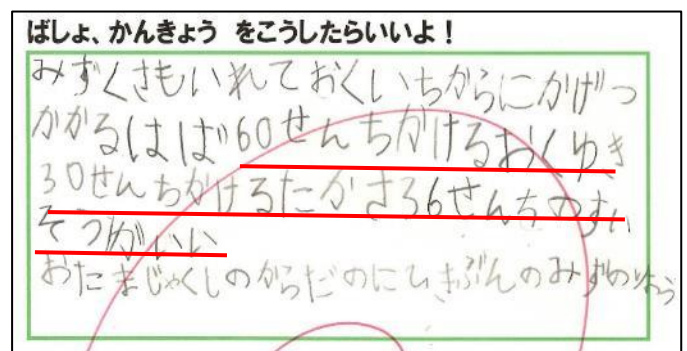 ばしょ、かんきょう をこうしたらいいよ！
みずくさもいれておくいちからにかげつ
かかるはば60せんちかけるおくゆき
30せんちかけるたかさ36せんちのすい
そうがいい
おたまじゃくしのからだのにひきぶんのみずの